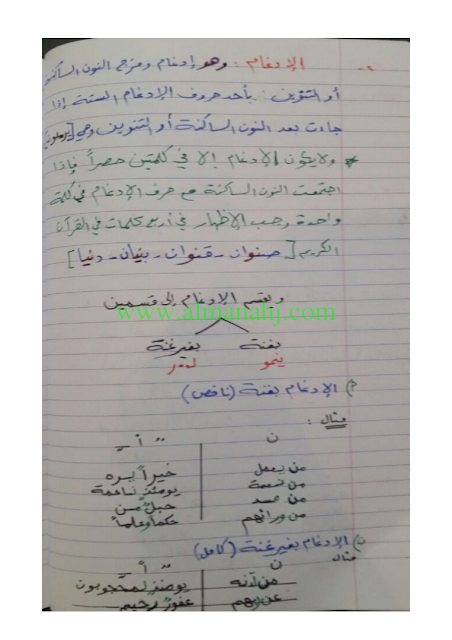 2- الإدغام : وهو إدغام ومزج النون الساكنة
أو التنوين بأحد حروف الإدغام الستة إذا
جاءت بعد النون الساكنة أو التنوين وهي [يرملون]
* ولا يكون الإدغام إلا في كلمتين حصراً فإذا
اجتمعت النون الساكنة مع حرف الإدغام في كلمة
واحدة وجب الإظهار في أربع كلمات في القرآن
الكريم [صنوان - قنوان - بنيان - دنيا]
ويقسم الإدغام إلى قسمين
www.almanahj.com
بغنة بغير غنة
ينمو لـ ر
الإدغام بغنة (ناقص)
مثال :
ن
من يعمل خيراً يره
من نعمة يومئذ ناعمة
من مسد حبل من
من ورائهم حكماً وعلماً
ب) الإدغام بغير غنة (كامل)
مثال
ن
من لدنه يومئذ لمحجوبون
عن ربهم غفور رحيم